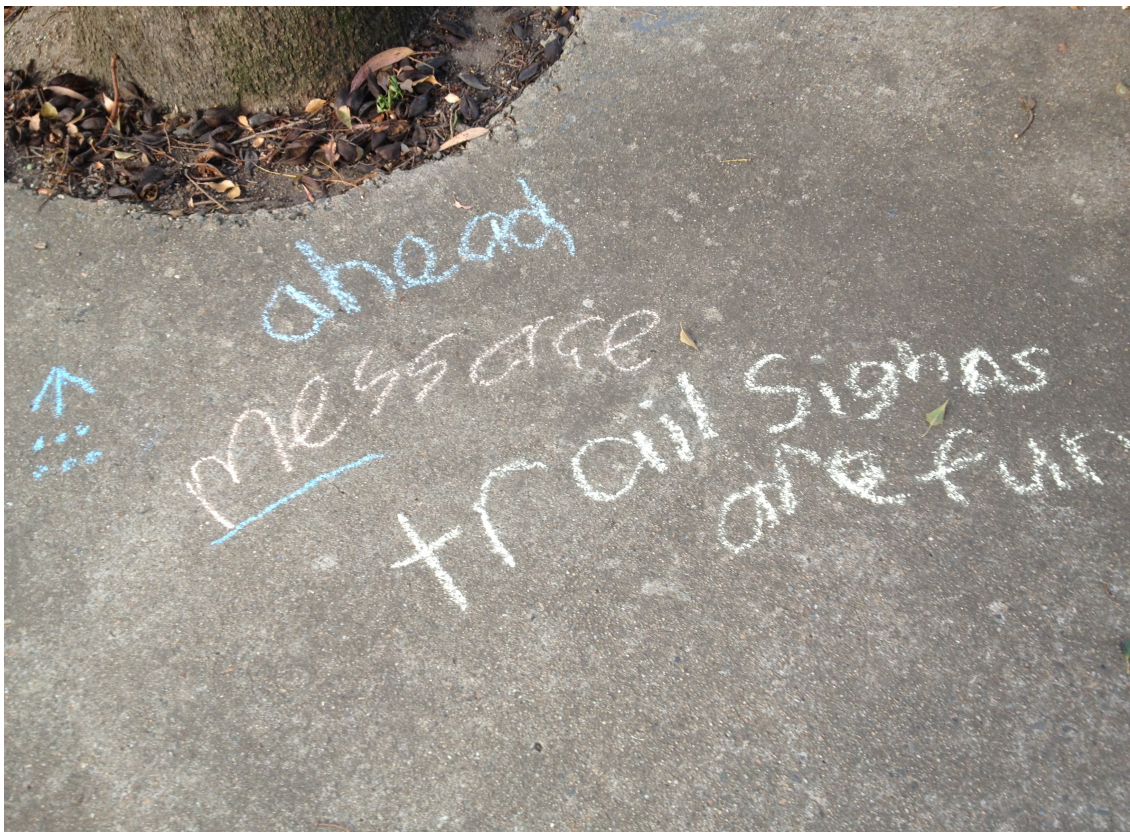 ahead
message
trail Sighas
are fun